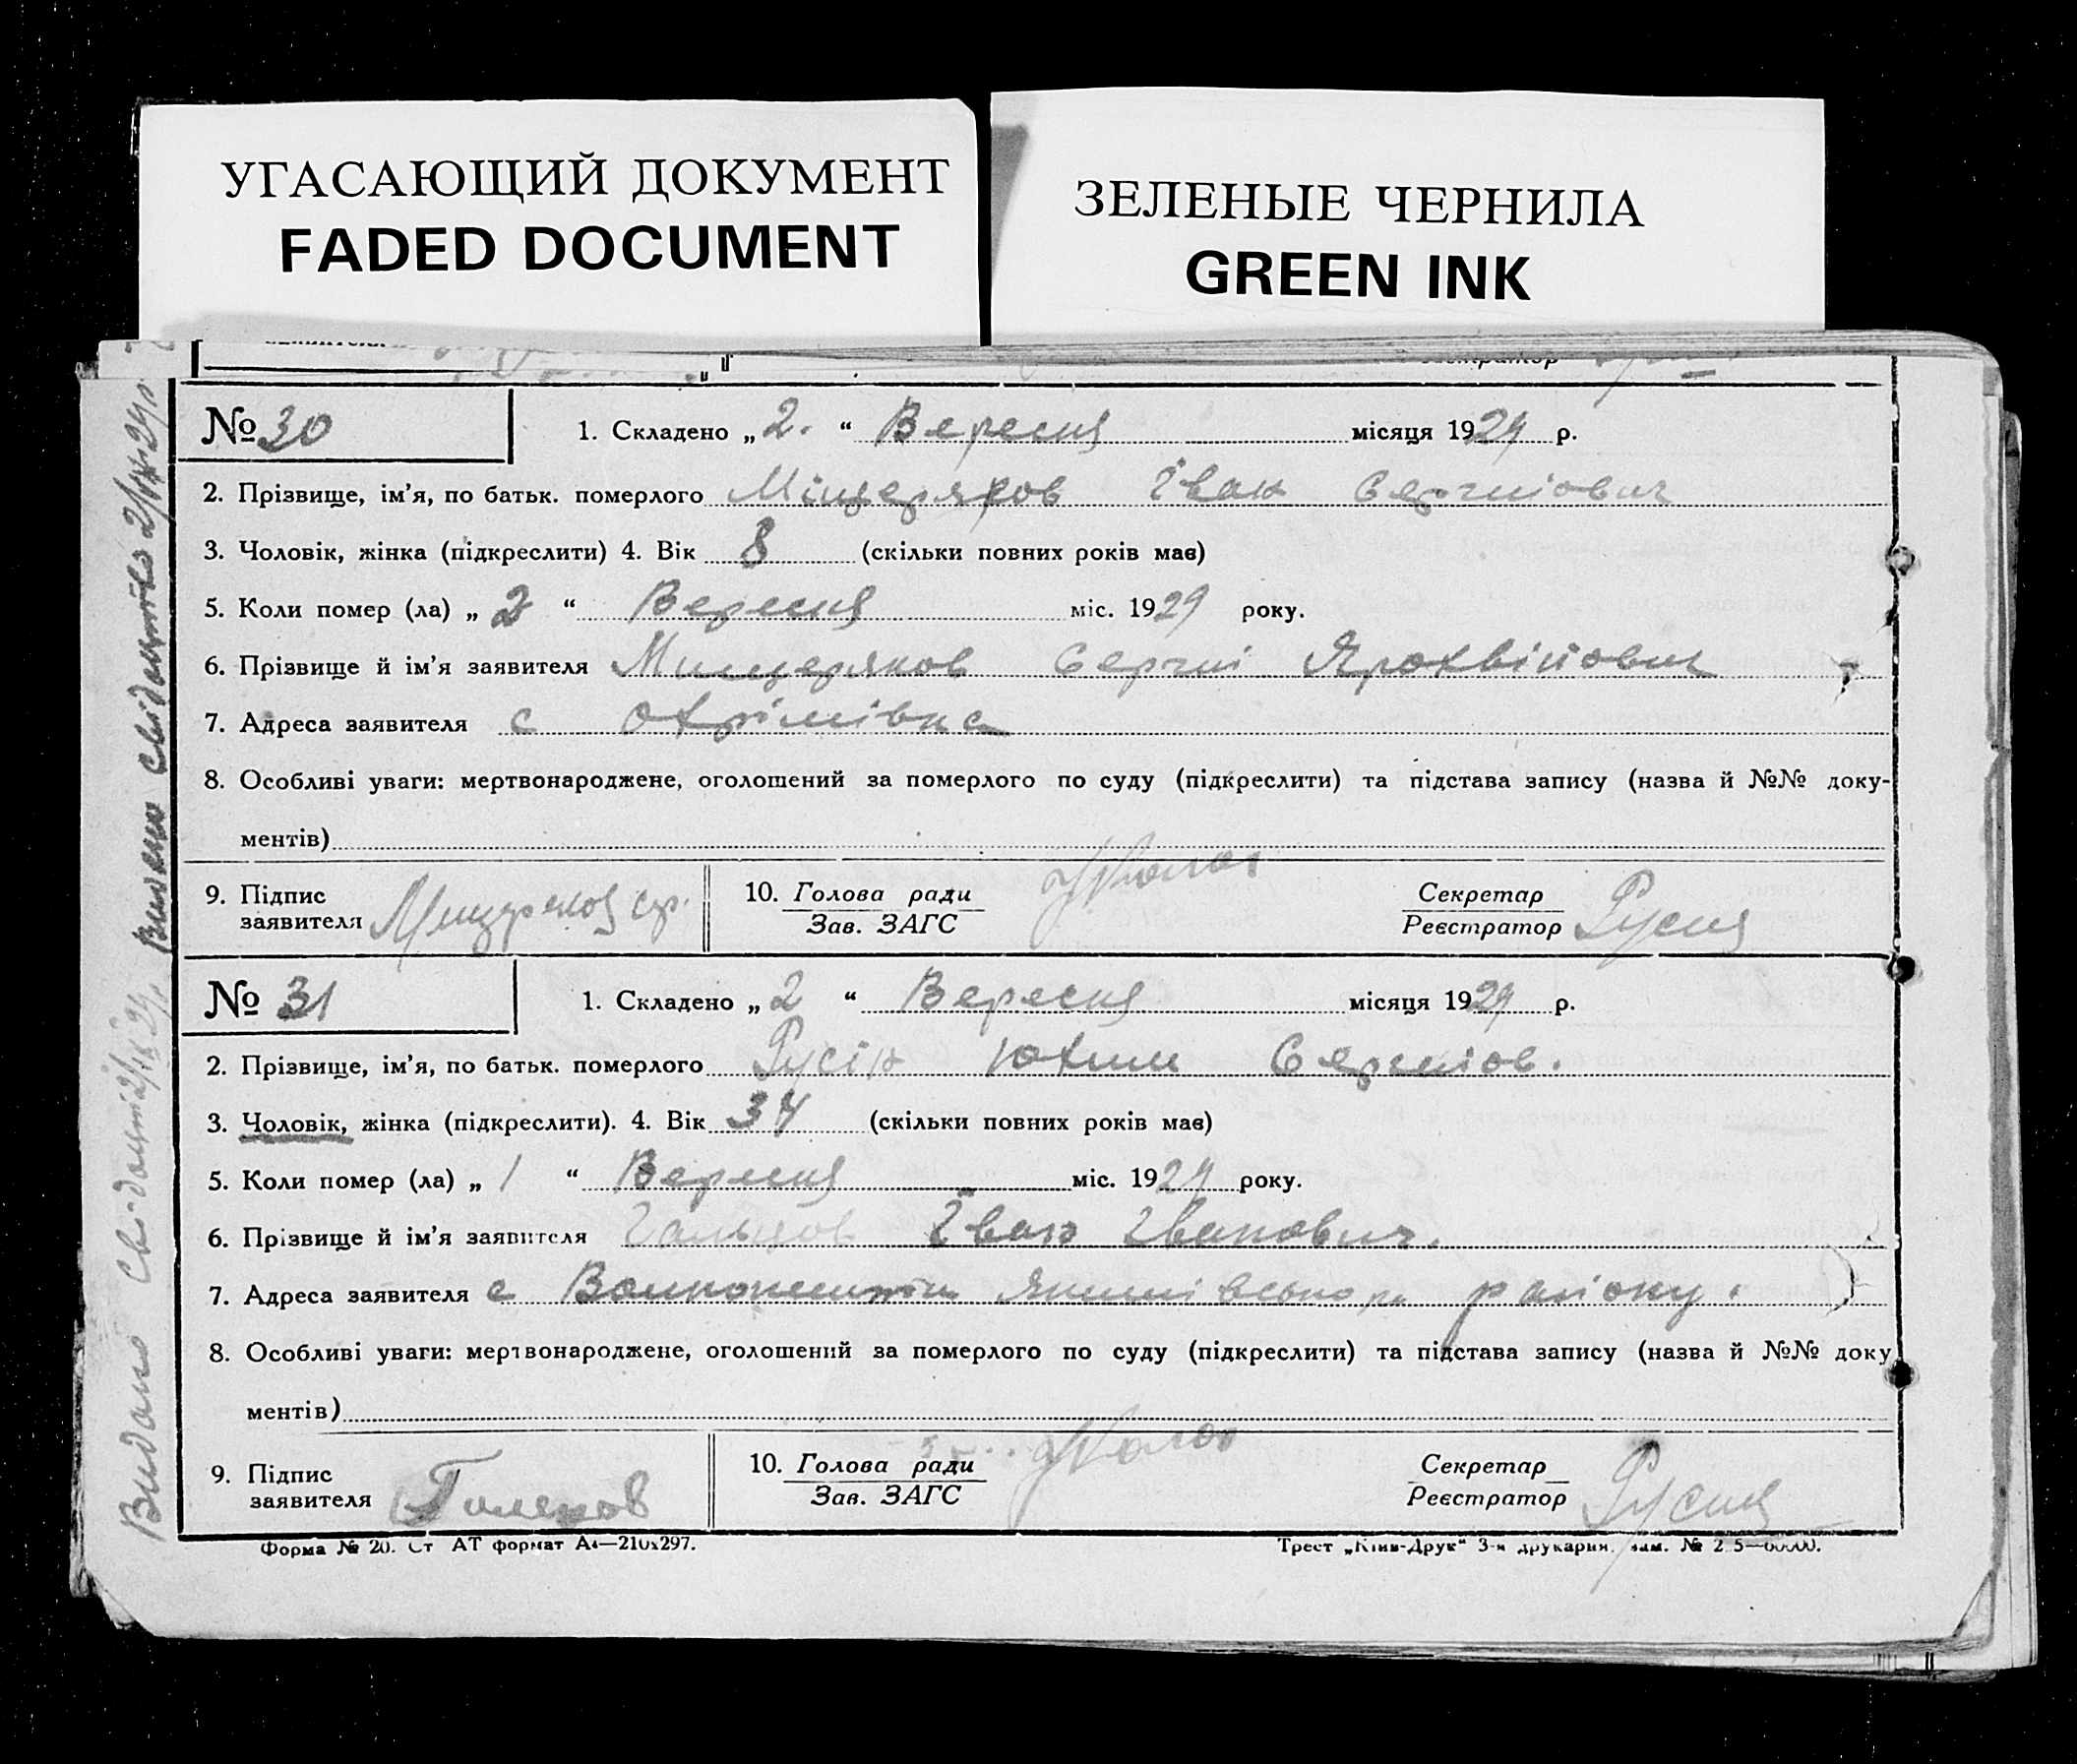 УГАСАЮЩИЙ ДОКУМЕНТ
FADED DOCUMENT
ЗЕЛЕНЫЕ ЧЕРНИЛА
GREEN INK
№ 30
1. Складено „ 2. “ Вересня місяця 1929 р.
2. Прізвище, ім’я, по батьк. померлого Міщеряков Іван Сергиіович
3. Чоловік, жінка (підкреслити) 4. Вік 8 (скільки повних років має)
5. Коли помер (ла) „ 2 “ Вересня міс. 1929 року.
6. Прізвище й ім’я заявителя Мищеряков Сергиі
7. Адреса заявителя с Охрімівка
8. Особливі уваги: мертвонароджене, оголошений за померлого по суду (підкреслити) та підстава запису (назва й №№ доку-
ментів)
9. Підпис заявителя
10. Голова ради
Зав. ЗАГС
Секретар
Реєстратор Русин
Видано свідоцтво
№ 31
1. Складено „ 2 “ Вересня місяця 1929 р.
2. Прізвище, ім’я, по батьк. померлого Русін Юхим Сергиіов.
3. Чоловік, жінка (підкреслити). 4. Вік 34 (скільки повних років має)
5. Коли помер (ла) „ 1 “ Вересня міс. 1929 року.
6. Прізвище й ім’я заявителя Іван Іванович.
7. Адреса заявителя с району.
8. Особливі уваги: мертвонароджене, оголошений за померлого по суду (підкреслити) та підстава запису (назва й №№ доку
ментів)
9. Підпис заявителя
10. Голова ради
Зав. ЗАГС
Секретар
Реєстратор Русин
Видано
Форма № 20. Ст АТ формат А4—210x297.
Трест „Київ-Друк“ 3-я друкарня.